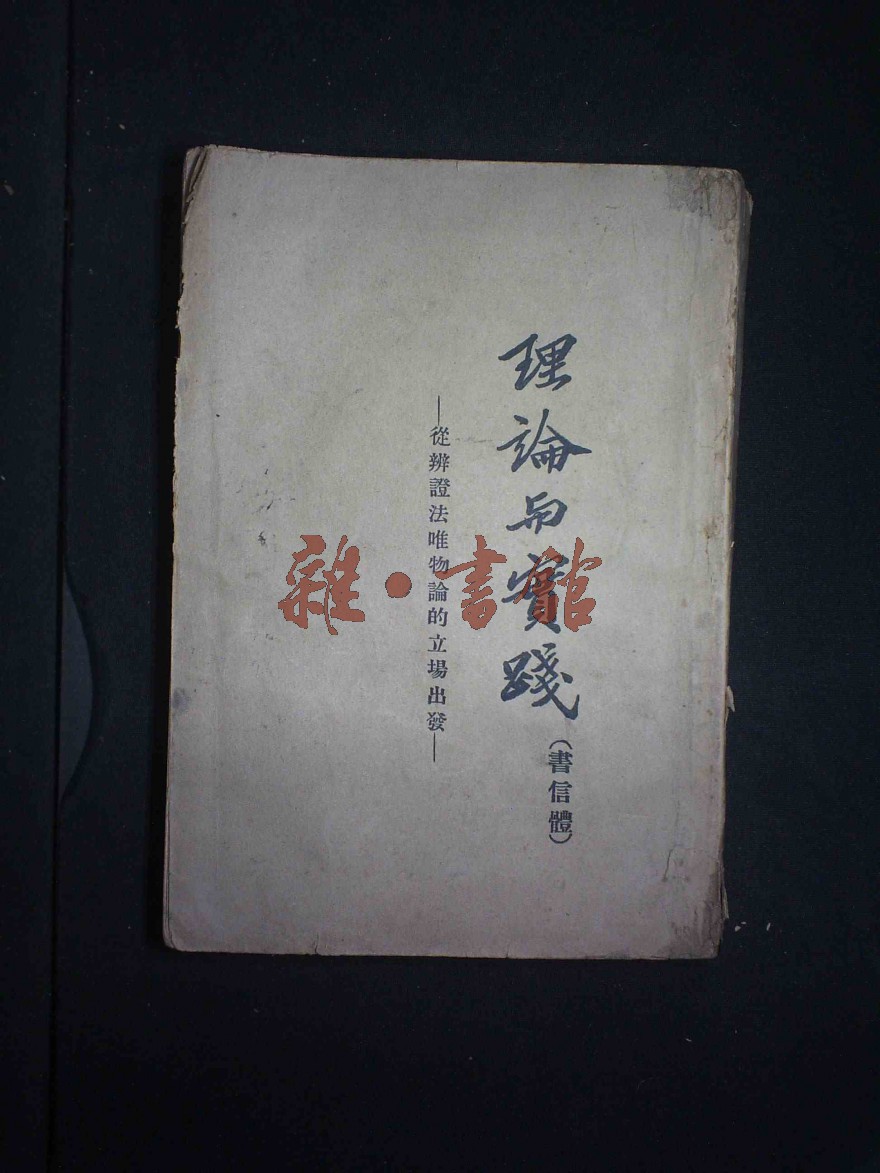 理論与實踐
(書信體)
—從辨證法唯物論的立場出發—
雜·書館